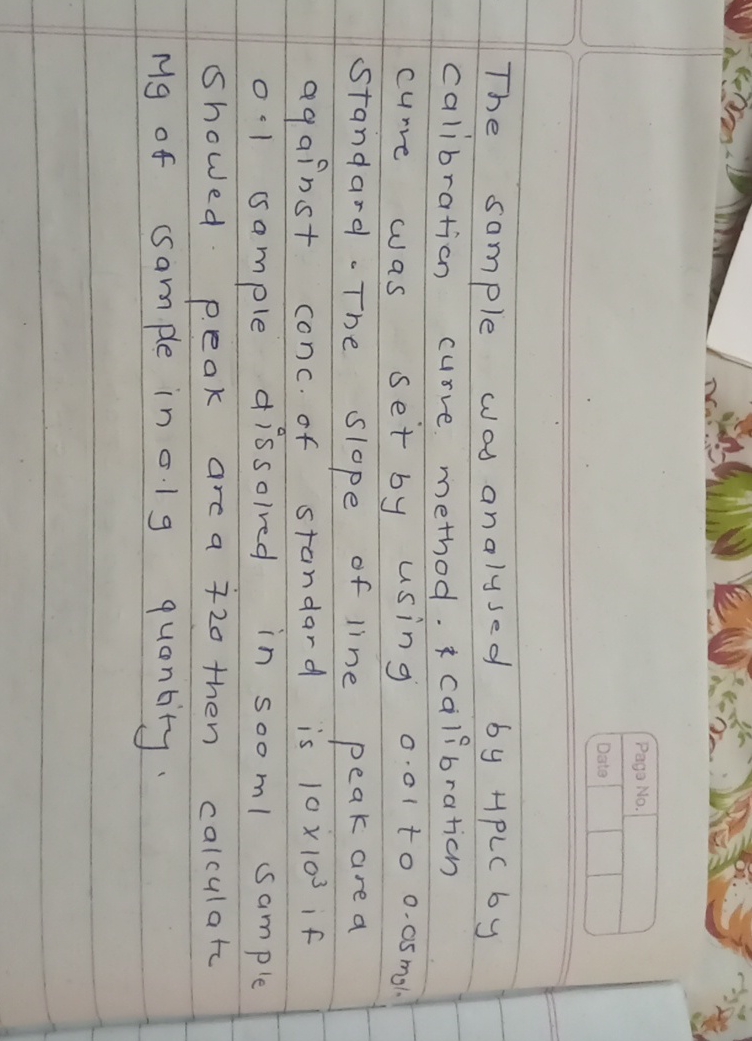 Page No.
Date
The sample was analysed by HPLC by
calibration curve method. calibration
curve was set by using 0.01 to 0.05 mg/.
standard. The slope of line peak area
against conc. of standard is 10x10³ if
0.1 sample dissolved in 500 ml sample
showed peak area 720 then calculate
Mg of sample in 0.1g quantity.